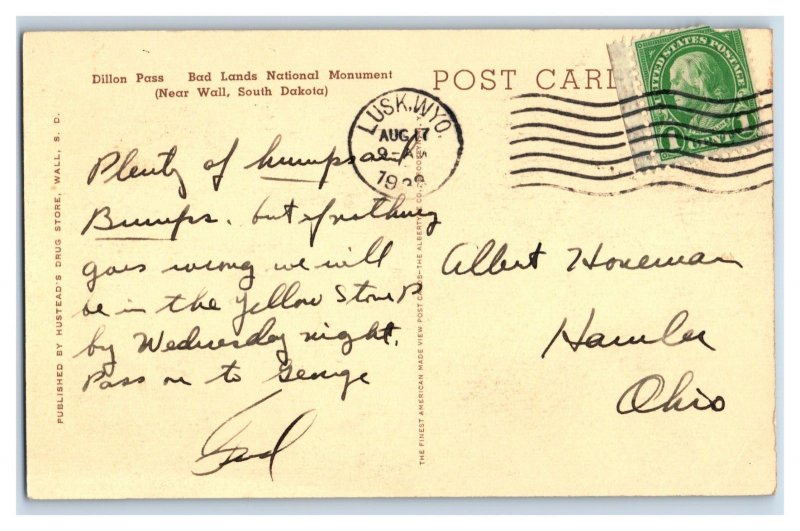 Dillon Pass Bad Lands National Monument
(Near Wall, South Dakota)
POST CARD
UNITED STATES POSTAGE
1 CENT 1
LUSK, WYO.
AUG 17
9-A
19
Plenty of humps and
Bumps. but if nothing
goes wrong we will
be in the Yellow Stone P
by Wednesday night.
Pass on to George
Albert Honeman
Hamler
Ohio
PUBLISHED BY HUSTEAD'S DRUG STORE, WALL, S. D.
THE FINEST AMERICAN MADE VIEW POST CARDS—THE ALBERTYPE CO.,